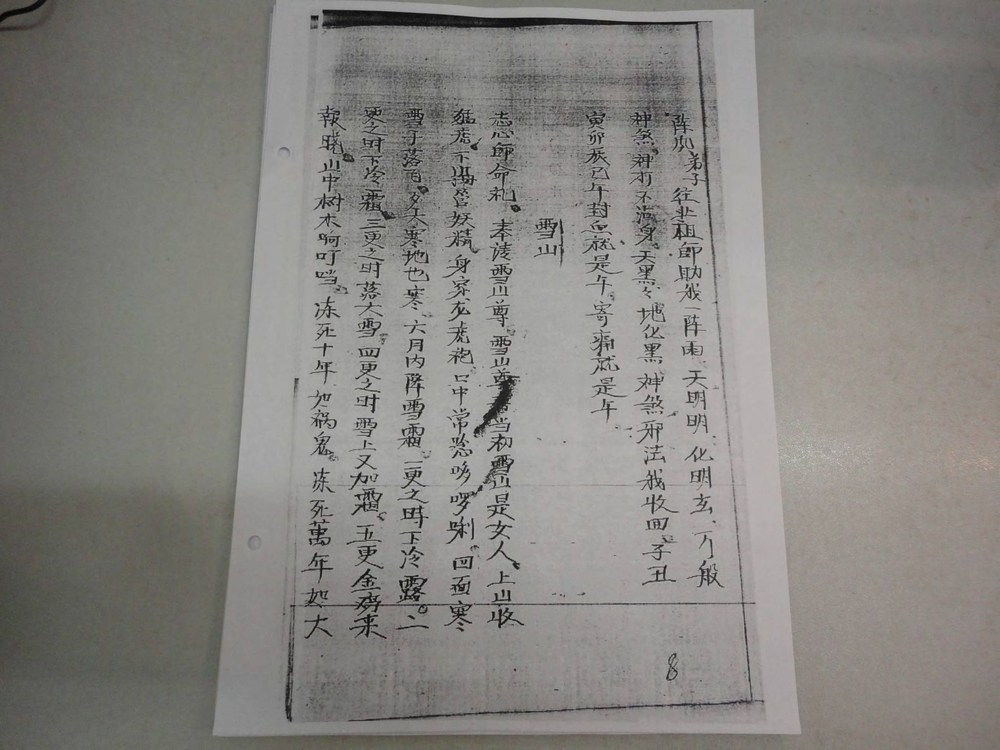 阵风弟子往坐祖師助我一阵雨天明明化明玄万般
神煞神打不满身天黑々地化黑神煞邪法我收回子丑
寅卯辰巳午封血就是午寄痛就是午
雪山
志心郎命礼奉请雪山尊雪山尊当初雪山是女人上山收
猛虎下海管妖精身穿龙虎袍口中常念哆啰唎四面寒
雪子落百夕天寒地也寒六月内降雪霜一更之時下冷露二
更之时下冷霜三更之时落大雪四更之时雪上又加霜五更金鸡来
報晓山中树木响叮噹冻死十年如祸鬼冻死萬年如大
8